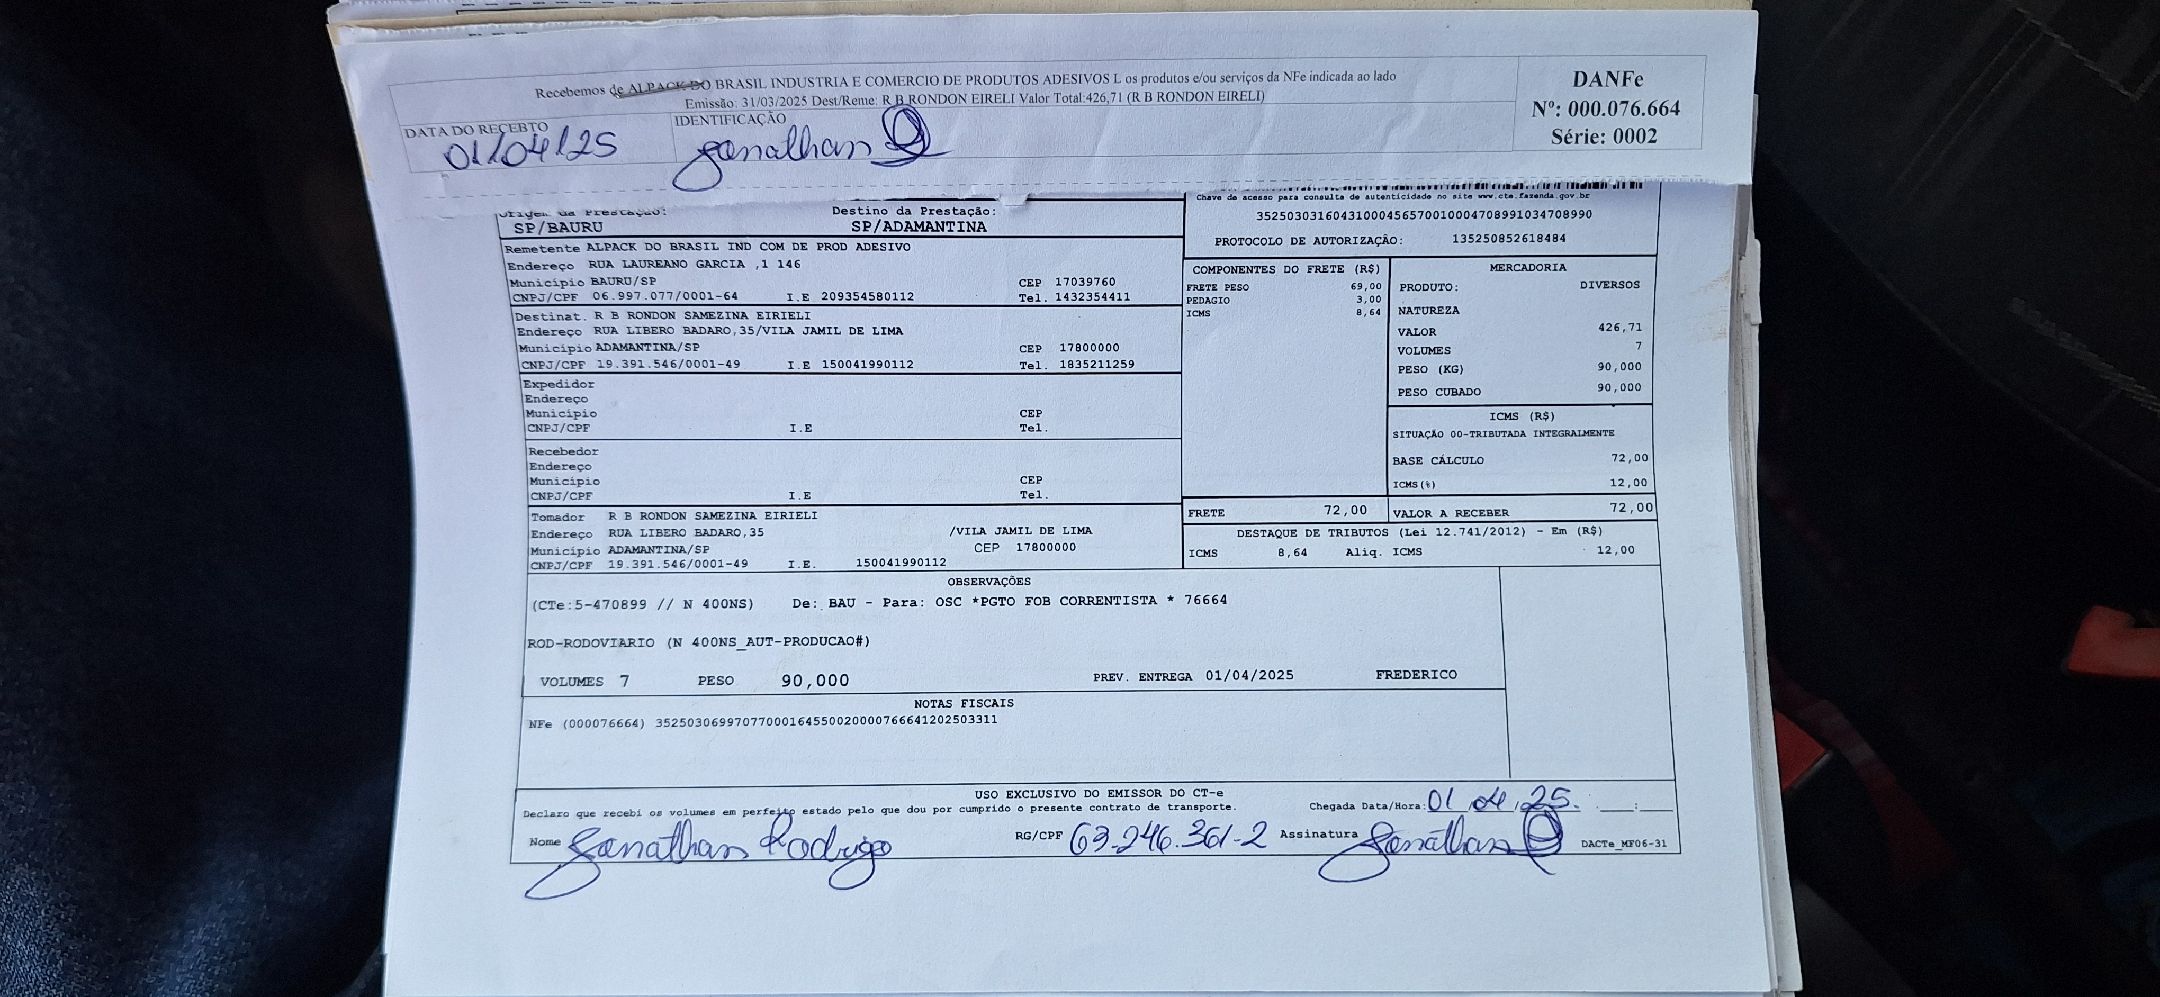 Recebemos de ALPACK DO BRASIL INDUSTRIA E COMERCIO DE PRODUTOS ADESIVOS L os produtos e/ou serviços da NFe indicada ao lado
Emissão: 31/03/2025 Dest/Reme: R B RONDON EIRELI Valor Total:426,71 (R B RONDON EIRELI)
DATA DO RECEBTO
01/04/25
IDENTIFICAÇÃO
Jonathan
DANFe
Nº: 000.076.664
Série: 0002
Origem da Prestação:
SP/BAURU
Destino da Prestação:
SP/ADAMANTINA
Chave de acesso para consulta de autenticidade no site www.cte.fazenda.gov.br
35250303160431000456570010004708991034708990
PROTOCOLO DE AUTORIZAÇÃO: 135250852618484
Remetente ALPACK DO BRASIL IND COM DE PROD ADESIVO
Endereço RUA LAUREANO GARCIA ,1 146
Município BAURU/SP CEP 17039760
CNPJ/CPF 06.997.077/0001-64 I.E 209354580112 Tel. 1432354411
Destinat. R B RONDON SAMEZINA EIRIELI
Endereço RUA LIBERO BADARO,35/VILA JAMIL DE LIMA
Município ADAMANTINA/SP CEP 17800000
CNPJ/CPF 19.391.546/0001-49 I.E 150041990112 Tel. 1835211259
Expedidor
Endereço
Município CEP
CNPJ/CPF I.E Tel.
Recebedor
Endereço
Município CEP
CNPJ/CPF I.E Tel.
Tomador R B RONDON SAMEZINA EIRIELI
Endereço RUA LIBERO BADARO,35 /VILA JAMIL DE LIMA
Município ADAMANTINA/SP CEP 17800000
CNPJ/CPF 19.391.546/0001-49 I.E. 150041990112
COMPONENTES DO FRETE (R$)
FRETE PESO 69,00
PEDAGIO 3,00
ICMS 8,64
MERCADORIA
PRODUTO: DIVERSOS
NATUREZA
VALOR 426,71
VOLUMES 7
PESO (KG) 90,000
PESO CUBADO 90,000
ICMS (R$)
SITUAÇÃO 00-TRIBUTADA INTEGRALMENTE
BASE CÁLCULO 72,00
ICMS(%) 12,00
FRETE 72,00 VALOR A RECEBER 72,00
DESTAQUE DE TRIBUTOS (Lei 12.741/2012) - Em (R$)
ICMS 8,64 Aliq. ICMS 12,00
OBSERVAÇÕES
(CTe:5-470899 // N 400NS) De: BAU - Para: OSC *PGTO FOB CORRENTISTA * 76664
ROD-RODOVIARIO (N 400NS_AUT-PRODUCAO#)
VOLUMES 7 PESO 90,000 PREV. ENTREGA 01/04/2025 FREDERICO
NOTAS FISCAIS
NFe (000076664) 35250306997077000164550020000766641202503311
USO EXCLUSIVO DO EMISSOR DO CT-e
Declaro que recebi os volumes em perfeito estado pelo que dou por cumprido o presente contrato de transporte. Chegada Data/Hora: 01/04/25. ___:___
Nome Jonathan Rodrigo RG/CPF 63.246.361-2 Assinatura Jonathan DACTe_MF06-31